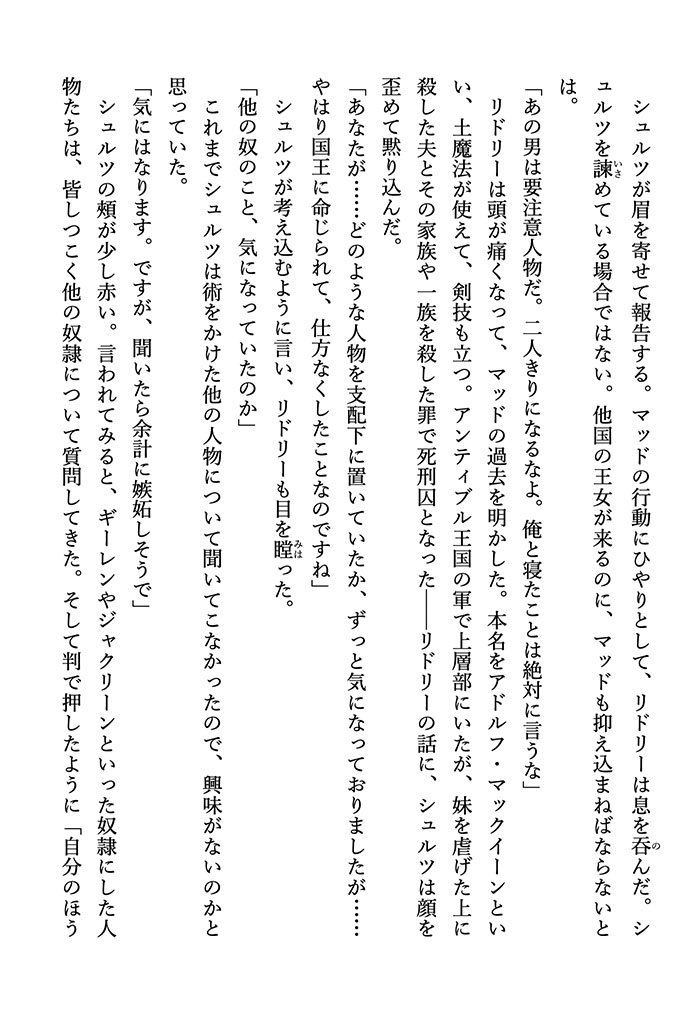 シュルツが眉を寄せて報告する。マッドの行動にひやりとして、リドリーは息を呑んだ。シ
ュルツを諫めている場合ではない。他国の王女が来るのに、マッドも抑え込まねばならないと
は。
「あの男は要注意人物だ。二人きりになるなよ。俺と寝たことは絶対に言うな」
リドリーは頭が痛くなって、マッドの過去を明かした。本名をアドルフ・マックイーンとい
い、土魔法が使えて、剣技も立つ。アンティブル王国の軍で上層部にいたが、妹を虐げた上に
殺した夫とその家族や一族を殺した罪で死刑囚となった――リドリーの話に、シュルツは顔を
歪めて黙り込んだ。
「あなたが……どのような人物を支配下に置いていたか、ずっと気になっておりましたが……
やはり国王に命じられて、仕方なくしたことなのですね」
シュルツが考え込むように言い、リドリーも目を瞠った。
「他の奴のこと、気になっていたのか」
これまでシュルツは術をかけた他の人物について聞いてこなかったので、興味がないのかと
思っていた。
「気にはなります。ですが、聞いたら余計に嫉妬しそうで」
シュルツの頬が少し赤い。言われてみると、ギーレンやジャクリーンといった奴隷にした人
物たちは、皆しつこく他の奴隷について質問してきた。そして判で押したように「自分のほう